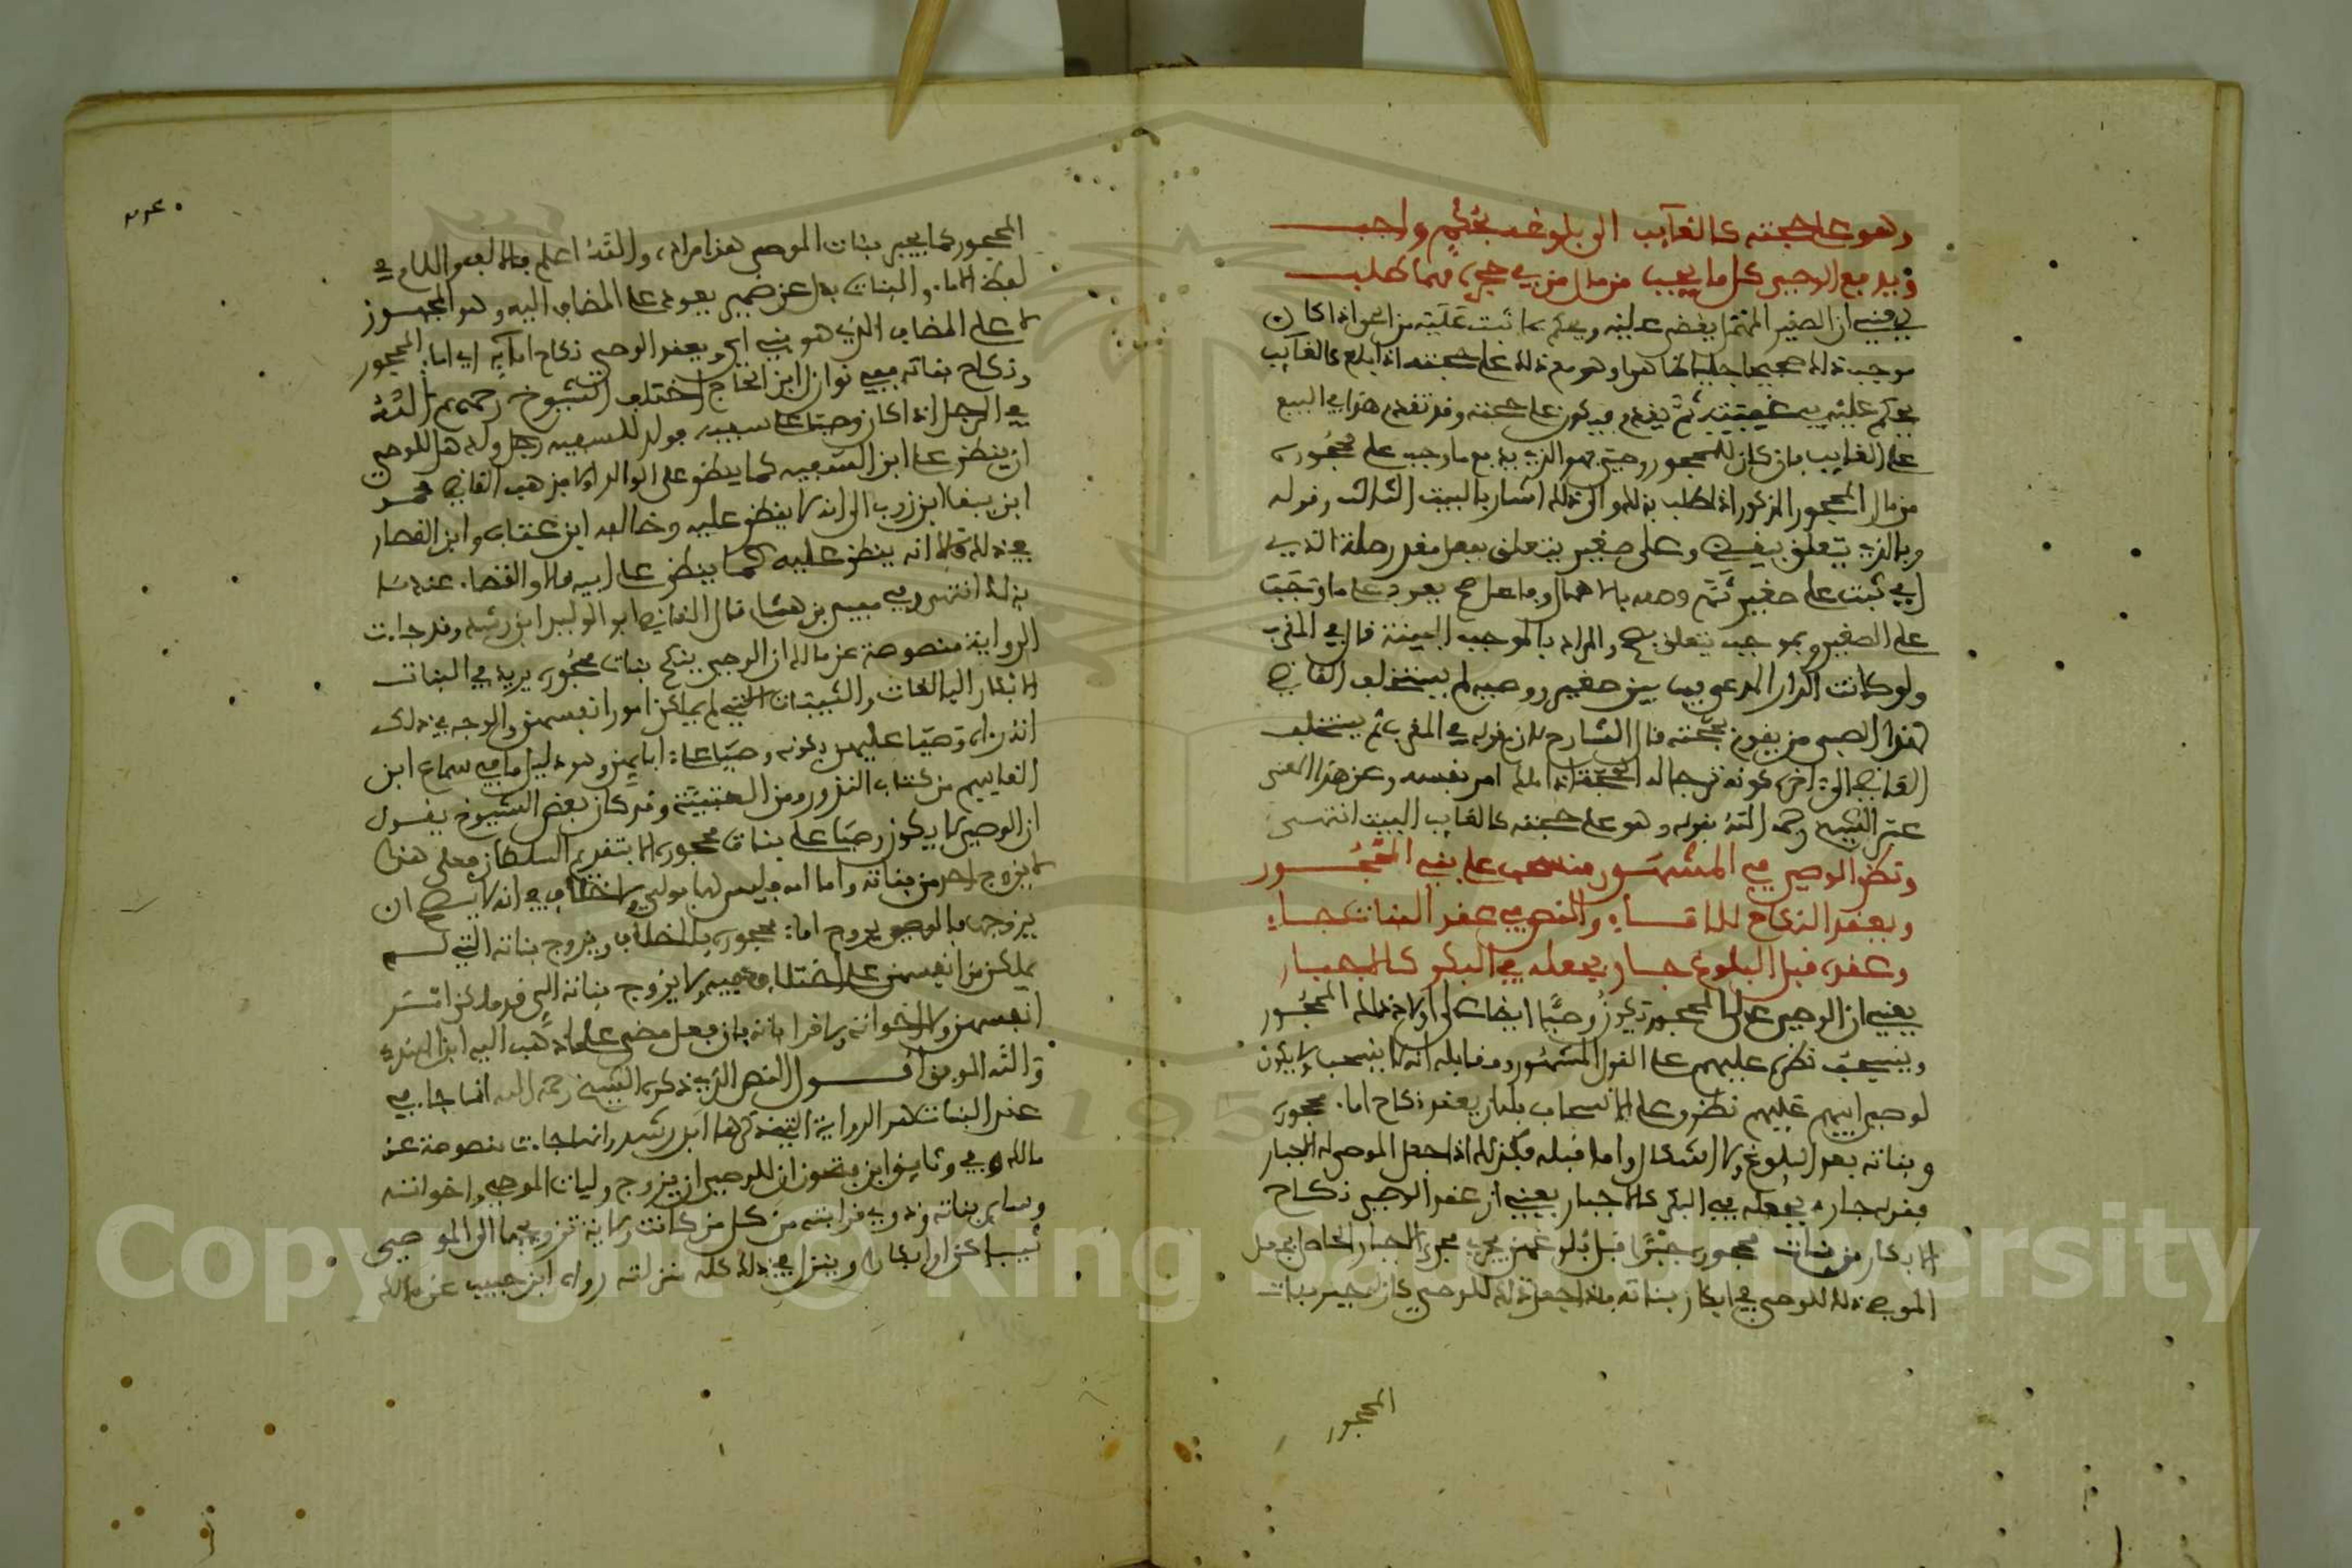 وهو على حجته كالغايب الى بلوغه بحكم واجب
ويدفع الوصي كل ما يجب من مال من في حجره مهما طلب
يعني ان الصغير يقضى عليه ويحكم بما ثبت عليه من الحق اذا كان
موجب ذلك صحيحا وهو مع ذلك على حجته اذا بلغ كالغايب
يحكم عليه في غيبته ثم يقدم فيكون على حجته وقد تقدم هذا في البيع
على الغايب فان كان للمحجور وصي فهو الذي يدفع ما وجب على محجوره
من مال المحجور المذكور اذا طلب بذلك والى ذلك اشار بالبيت الثالث وقوله
وبالذي يتعلق بيقضى وعلى صغير يتعلق بفعل مقدر صلة الذي
اي ثبت على صغير ثم وصفه بالاهمال وفاعل صح يعود على ما وتجب
على الصغير وبموجب يتعلق بصح والمراد بالموجب البينة قال في المقرب
ولو كانت الدار المدعى فيها بين صغير ووصيه لم يستخلف القاضي
لهذا الصبي من يقوم بحجته قال الشارح فان قوله في المقرب لم يستخلف
القاضي الى اخره كونه ترجا له الحجة اذا ملك امر نفسه وعن هذا المعنى
عبر الشيخ رحمه الله بقوله وهو على حجته كالغايب البيت انتهى
ونظر الوصي في المشهور منسحب على بني المحجور
ويعقد النكاح للاماء والنص في عقد البنات جاء
وعقده قبل البلوغ جار بجعله في البكر كالاجبار
يعني ان الوصي على المحجور يكون وصيا ايضا على اولاد ذلك المحجور
وينسحب نظره عليهم على القول المشهور ومقابله انه لا ينسحب ولا يكون
لوصي ابيهم عليهم نظر وعلى الانسحاب فله ان يعقد نكاح اماء محجوره
وبناته بعد البلوغ ولا اشكال واما قبله فكذلك اذا جعل الموصي له الاجبار
فقوله جار بجعله في البكر كالاجبار يعني ان عقد الوصي نكاح
الابكار من بنات محجوره جبرا قبل بلوغهن يجري مجرى الجبار الخاص اي جعل
الموصي ذلك للوصي في ابكار بناته فاذا جعل ذلك للوصي كان له جبر بنات
المحجور
المحجور كما يجبر بنات الموصي هذا مراده والله اعلم فالالف واللام في
لفظ الاماء والبنات بدل عن ضمير يعود على المضاف اليه وهو المحجور
لا على المضاف الذي هو بني اي ويعقد الوصي نكاح امائه اي اماء المحجور
ونكاح بناته ففي نوازل ابن الحاج اختلف الشيوخ رحمهم الله
في الرجل اذا كان وصيا على سفيه فولد للسفيه رجل ولد هل للوصي
ان ينظر على ابن السفيه كما ينظر على الوالد ام لا فذهب القاضي محمد
ابن يبقى ابن زرب الى انه لا ينظر عليه وخالفه ابن عتاب وابن القصار
في ذلك وقالا انه ينظر عليه كما ينظر على ابيه قالا والقضاء عندنا
بذلك انتهى وفي مفيد بن هشام قال القاضي ابو الوليد ابن رشد وقد جاءت
الرواية منصوصة عن مالك ان الوصي ينكح بنات محجوره يريد في البنات
الابكار البالغات والثيبات اللاتي لم يملكن امور انفسهن والوجه في ذلك
انه راه وصيا عليهن بكونه وصيا على ابايهن وهو دليل ما في سماع ابن
القاسم من كتاب النذور ومن العتبية وقد كان بعض الشيوخ يقول
ان الوصي لا يكون وصيا على بنات محجوره الا بتقديم السلطان فعلى هذا
لا يزوج احد من بناته واما امه فليس لها بولي ولا اختلاف في انه لا يصح ان
يزوجها فالوصي يزوج اماء محجوره بلا خلاف ويزوج بناته التي لم
يملكن من انفسهن على اختلاف فيه ولا يزوج بناته التي قد ملكن امر
انفسهن ولا اخواته ولا قراباته فان فعل مضى على ما ذهب اليه ابن الهندي
والله الموفق اقول النص الذي ذكره الشيخ رحمه الله انما جاء في
عقد البنات هو الرواية التي ذكرها ابن رشد وانها جاءت منصوصة عن
مالك وفي وثايق ابن فتحون ان للوصي ان يزوج وليات الموصي واخواته
وساير بناته وذوي قرابته من كل من كانت ولاية تزويجها الى الموصي
ثيبا كن او ابكارا وينزل في ذلك كله منزلته رواه ابن حبيب عن مالك